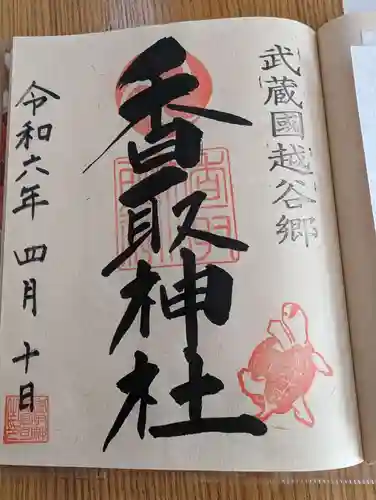 武蔵國越谷郷
香取神社
令和六年 四月 十日